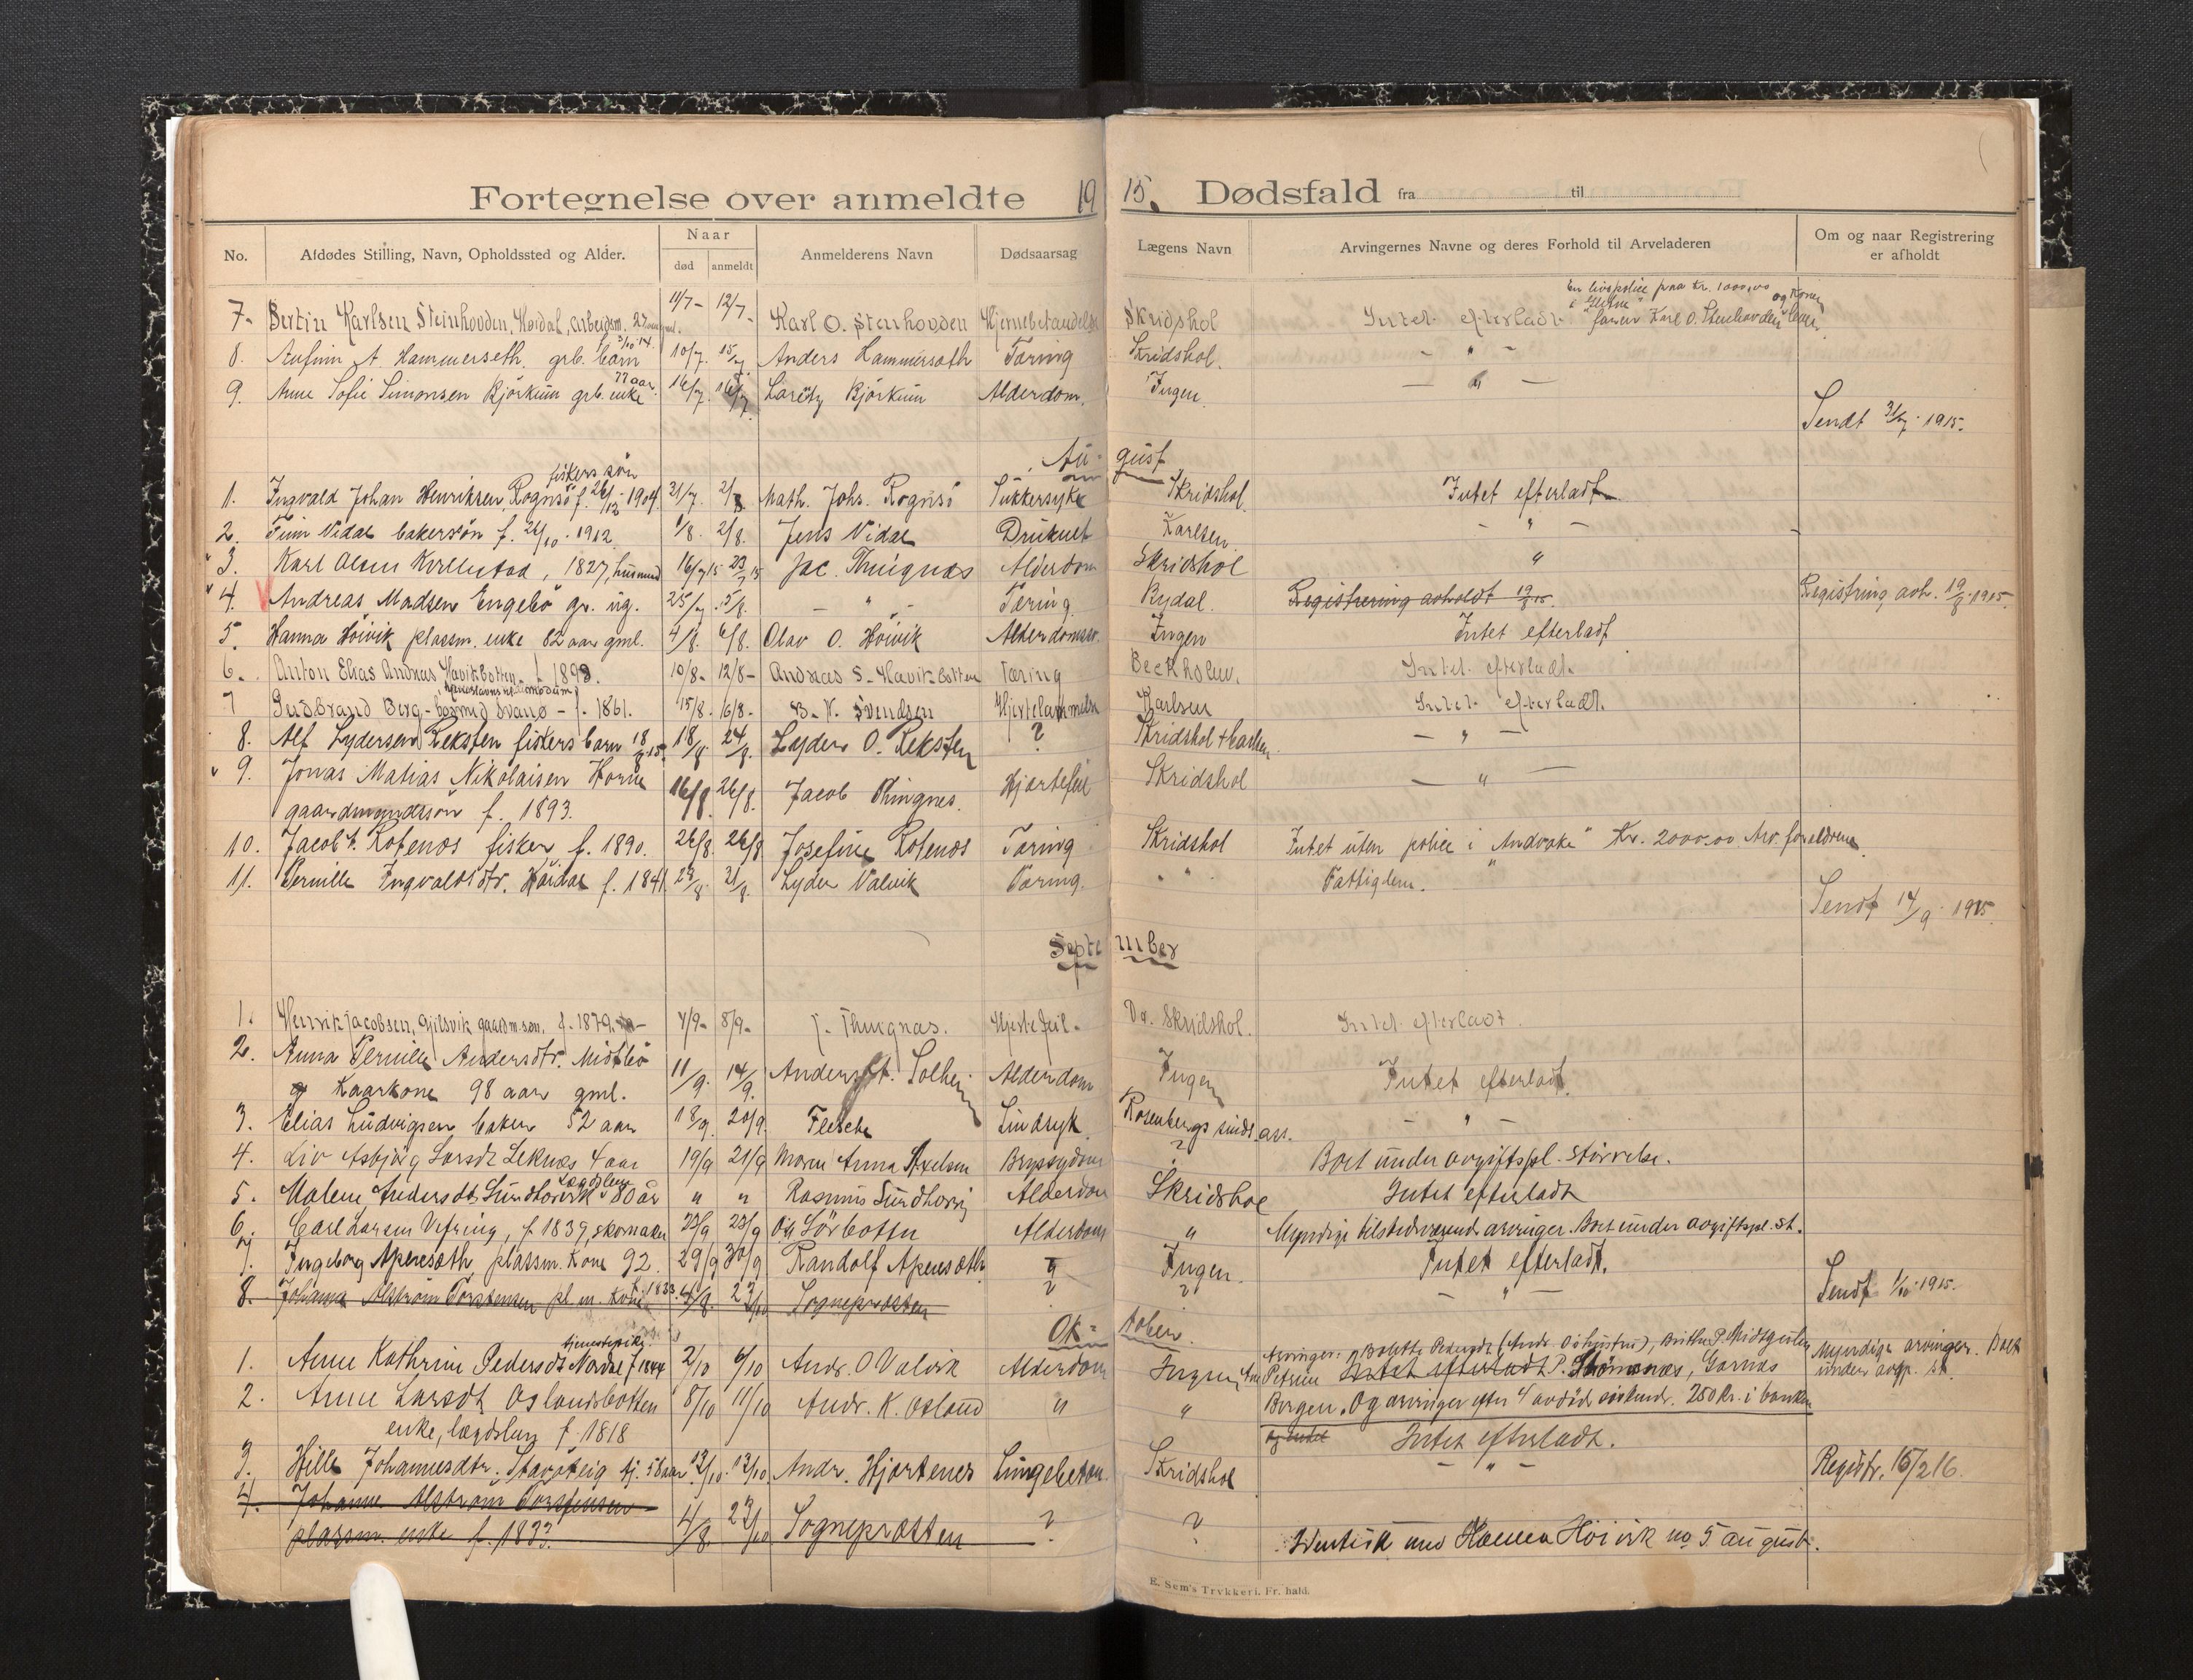 Fortegnelse over anmeldte 1915. Dødsfald fra til
No. Afdødes Stilling, Navn, Opholdssted og Alder. Naar død anmeldt Anmelderens Navn Dødsaarsag Lægens Navn Arvingernes Navne og deres Forhold til Arveladeren Om og naar Registrering er afholdt
En livspolice paa kr. 1000,00
7. Bertin Karlsen Steinhovden, Høidal, arbeidsm. 11/7- 12/7- Karl O. Stenhovden Skridshol Intet efterladt faren Karl O. Stenhovden og Kone
8. A. Hammerseth, grb. barn 10/7. 15/7. Anders Hammerseth Tæring Skridshol. - " -
9. Anne Sofie Simonsen Bjørkum grb. enke 77 aar 16/7. 16/7 Bjørkum Alderdom. Ingen. - " -
Sendt 31/7. 1915.
August
fiskers søn
1. Ingvald Johan Henriksen Rognsø f. 26/12 1904 31/7. 2/8. Math. Johs. Rognsø Sukkersyke Skridshol. Intet efterladt
2. Finn Vidal bakersøn f. 26/10. 1912. 1/8. 2/8. Jens Vidal Druknet Karlsen. - " -
3. Karl Olsen , 1827, husmand 16/7 15 23/7 15 Jac. Thingnæs Alderdom Skridshol "
4. Andreas Madsen Engebø gr. ug. 25/7. 5/8. - " - Tæring Rydal. Registrering avholdt 19/8 15. Registring avh. 19/8 1915.
5. Hanna Høivik plassm. enke 82 aar gml. 4/8. 6/8. Olav O. Høivik Ingen Intet efterladt
6. Anton Elias Andreas Høvikbotten f. 1898. 10/8- 12/8- Andreas S. Høvikbotten Tæring Intet efterladt.
7 Berg - Svanø - f. 1861. 15/8. 16/8- B. N. Svendsen Hjertelammelse Karlsen Intet efterladt.
8. Alf Lydersen Leksten fiskers barn 18/8. 24/8. Lyder O. Leksten ? Skridshol + Karlsen. - " -
9. Jonas Matias Nikolaisen Horne 16/8. 26/8. Jacob Thingnes. Hjertefeil Skridshol - " -
gaardmandssøn f. 1893.
10. Jacob Rotenes fisker f. 1890. 26/8. 26/8 Josefine Rotenes Tæring Skridshol Intet uten police i "Andvake" Kr. 2000.00 Arv. forældrene.
11. Pernille Ingvaldsdtr. Høidal f. 1841 Lyder Valvik Tæring. " Fattiglem.
Sendt 14/9. 1915.
September
1. Henrik Jacobsen, Gjilsvik gaardm.søn, f. 1879. 4/9- 8/9- J. Thingnæs. Hjertefeil. Dr. Skridshol. Intet efterladt.
2. Anna Pernille Andersdtr. Midtbø 11/9. 14/9. Anders Solheim Alderdom Ingen Intet efterladt.
Kaarkone 98 aar gml.
3. Elias Ludvigsen baker 52 aar 18/9. 20/9. Flesche Sindsyk. Rosenbergs sinds.as. - " -
4. Liv Asbjørg Larsdt Leknæs 4 aar 19/9 21/9 Moren Anna Axelsen ? Boet under avgiftspl. størrelse.
Lægdslem
5. Malene Andersdt Sundhovik 80 år " " Rasmus Sundhovig Alderdom Skridshol Intet efterladt
6. Carl Larsen Vefring, f. 1839, skomaker 23/9 23/9 Sørbotten Alderdom " Myndige tilstedeværende arvinger. Boet under avgiftspl. st.
7. Ingeborg Apenesæth plassm. Kone 92. 29/9 30/9 Randolf Apenesæth ? Ingen. Intet efterladt.
8. Johanne Alstrøm Torstensen pl.m. kone 1833. 4/8. 23/10 Sognepresten ? ? - " - Sendt 1/10. 1915.
Oktober.
1. Anne Kathrine Pedersdt Nordal f. 1844 2/10 6/10 Andr. O Valvik Alderdom Ingen Petrine Intet efterladt P. Strømsnæs, Myndige arvinger. Boet
under avgp. st.
2. Anne Larsdt Oslandsbotten 8/10 11/10 Andr. K. Osland " " Bergen. Og arvinger efter 4 avdøde søskende. 250 Kr. i banken
enke, lægdslem f. 1818 og intet Intet efterladt.
3. Hille Johannesdtr. Stavøteig tj. 58 aar 12/10. 13/10 Andr. Hjortenes Lungebetæn. Skridshol - " - Registr. 15/2 16.
4. Johanne Alstrøm Torstensen
plassm. enke f. 1833. 4/8. 23/10 Sognepresten ? ? Identisk med Hanna Høivik no 5 august.
E. Sem's Trykkeri. Fr. hald.